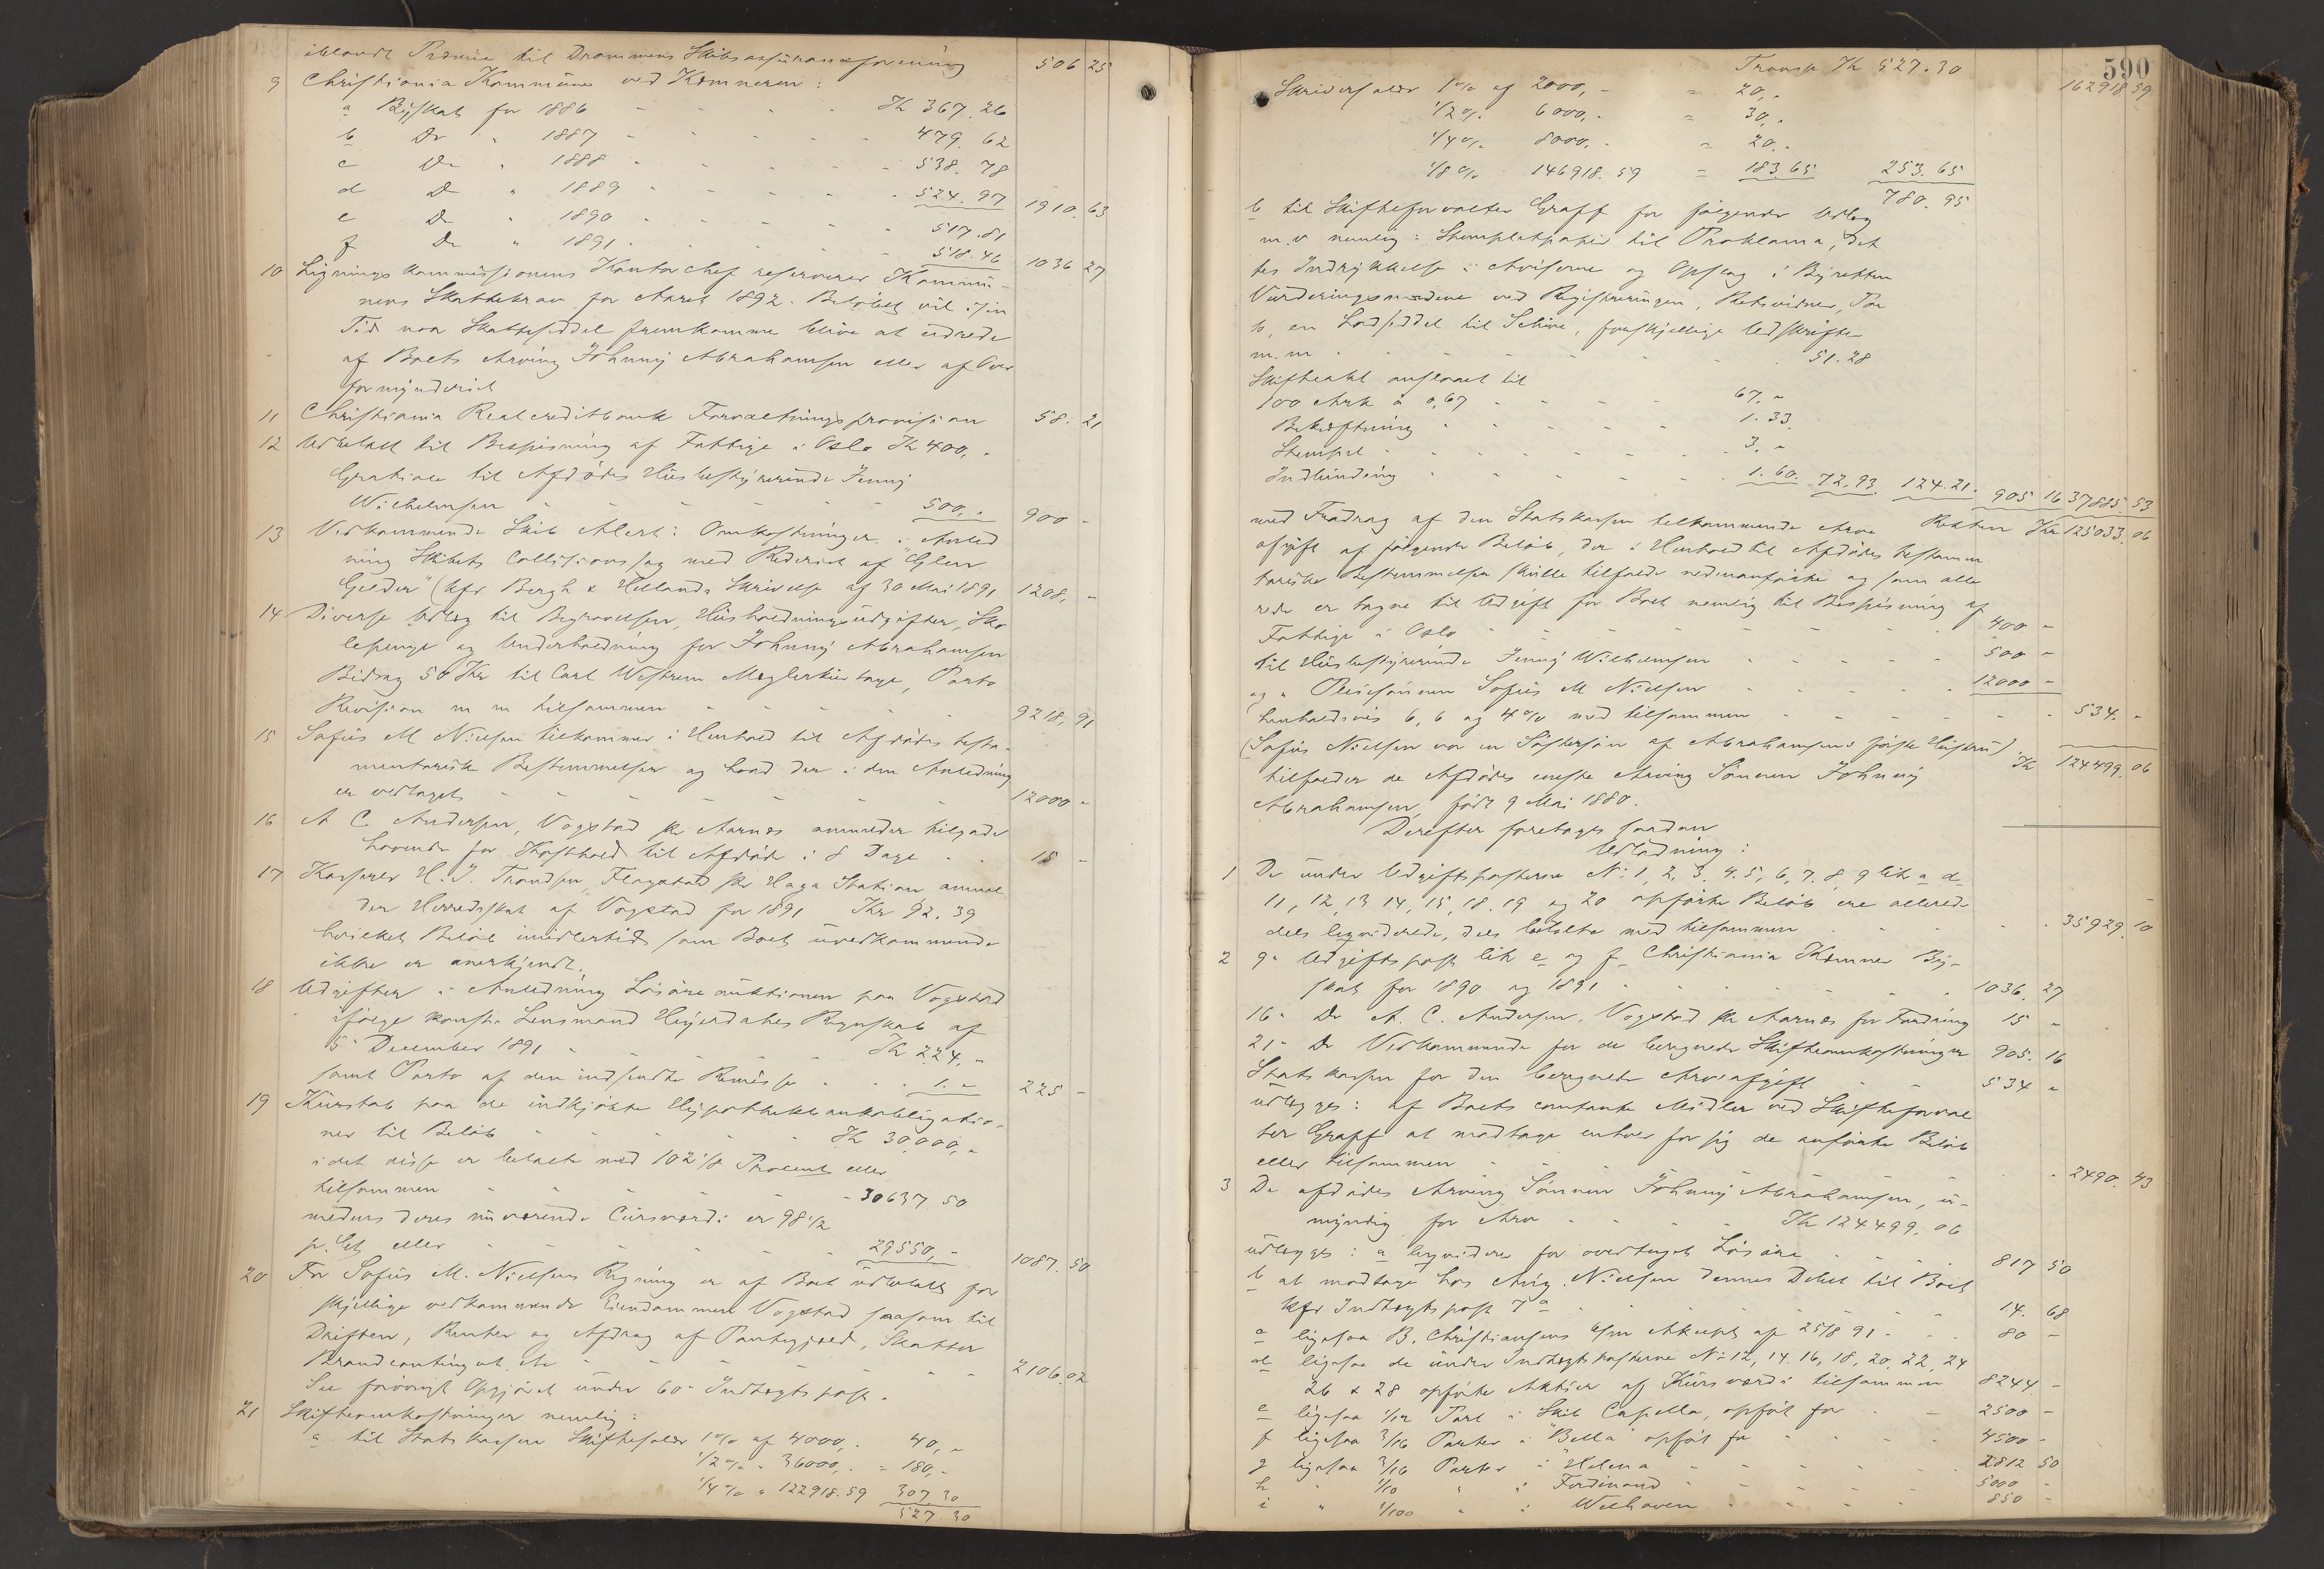 iblandt Præmie til Drammens Skibsassuranceforening 506 25
9 Christiania Kommune ved Kemneren:
a Byskat for 1886 - - - - Kr 367.26
b Do " 1887 - - - - 479.62
c Do " 1888 - - - - 538.78
d Do " 1889 - - - - 524.97 1910.63
e Do " 1890 - - - - 517.81
f Do " 1891 - - - - 518.46 1036 27
10 Lignings kommissionens Kontorchef reserverer Kommu-
nens Skattekrav for Aaret 1892. Beløbet vil i sin
Tid naar Skatteseddel fremkommer blive at udrede
af Boets Arving Johnny Abrahamsen eller af Over
formynderiet
11 Christiania Realcreditbank Forvaltningsprovision 58.21
12 Udbetalt til Bespisning af Fattige i Oslo Kr 400, "
Gratiale til Afdødes Husbestyrerinde Jenny
Wilhelmsen - - - - 500, " 900 -
13 Vedkommende Skib Alert: Omkostninger i Anled
ning Skibets Collisionssag med Rederiet af "Glen
Gelder" (kfr Bergh & Hellands Skrivelse af 30 Mai 1891 1208, -
14 Diverse Udlæg til Begravelsen, Husholdningsudgifter, Sko
lepenge og Underholdning for Johnny Abrahamsen
Bidrag 50 Kr til Carl Westrum Meglerkurtage, Porto
Revision m m tilsammen - - - - 9218,91
15 Sofus M Nielsen tilkommer i Henhold til Afdødes testa-
mentariske Bestemmelser og hvad der i den Anledning
er vedtaget - - - - 12000 -
16 A C Andersen, Vogstad pr Aarnæs anmelder tilgode
havende for Kosthold til Afdøde i 8 Dage - - 15 -
17 Kasserer H. J. Trondsen, Flagstad pr Haga Station anmel
der Herredsskat af Vogstad for 1891 Kr 92.39
hvilket Beløb imidlertid som Boet uvedkommende
ikke er anerkjendt.
18 Udgifter i Anledning Løsøreauktionen paa Vogstad
ifølge konst. Lensmand Heyerdahls Regnskab af
5 December 1891 - - - Kr 224, -
samt Porto af den indsendte Remisse - - - 1. - 225 -
19 Kurstab paa de indkjøbte Hypothekbankobligatio-
ner til Beløb - - - - Kr 30,000, -
idet disse er betalte med 102 1/8 Procent eller
tilsammen - - - - 30637.50
medens deres nuværende Cursværdi er 98 1/2
p. Ct. eller - - - - 29550, - 1087.50
20 For Sofus M. Nielsens Regning er af Boet udbetalt for
skjellige vedkommende Eiendommen Vogstad saasom til
Driften, Renter og Afdrag af Pantegjæld, Skatter
Brandcontingent, etc - - - - 2106.02
Se forøvrigt Opgjøret under 60 Indtægts post.
21 Skifteomkostninger nemlig:
a til Stats kassen Skiftesalær 1% af 4000, . 40, -
1/2 % " 36000, . = 180, -
1/4 % " 122918.59 307.30
527.30
590
Transp Kr 527.30 162918.59
Skriversalær 1% af 2000, - = 20, .
1/2 % 6000, . = 30, .
1/4 % 8000, . = 20. .
1/8 % 146918.59 = 183.65 253.65
780.95
b til Skifteforvalter Graff for følgende Udlæg
m.v nemlig: Stemplet papir til Proklama, det
tes Indrykkelse i Aviserne og Opslag i Byretten
Vurderingsmændene ved Registreringen, Retsvidner, Por
to, en Lodseddel til Schive, forskjellige Udskrifter
m.m - - - - 51.28
Skifteakt anslaaet til
100 Ark à 0,67 - - - - 67. "
Bekræftning - - - - 1.33.
Stempel - - - - 3. "
Indbinding - - - - 1.60. 72.93. 124.21. 905 16 37885.53
Resten Kr 125033.06
med Fradrag af den Statskassen tilkommende Arve
afgift af følgende Beløb, der i Henhold til Afdødes testamen
tariske Bestemmelser skulle tilfalde nedenanførte og som alle
rede er tagne til Udgift for Boet nemlig til Bespisning af
Fattige i Oslo - - - - 400 -
til Husbestyrerinde Jenny Wilhelmsen - - - - 500 -
og " Pleiesønnen Sofus M Nielsen - - - - 12000 -
henholdsvis 6, 6 og 4% med tilsammen - - - - 534. -
(Sofus Nielsen var en Søstersøn af Abrahamsens første Hustru) Kr 124499.06
tilfalder de Afdødes eneste Arving Sønnen Johnny
Abrahamsen, født 9 Mai 1880.
Derefter foretages saadan
Udlodning:
1 De under Udgiftsposterne No 1, 2, 3, 4. 5, 6, 7. 8, 9 lit a - d
11, 12, 13 14, 15, 18. 19 og 20 opførte Beløb ere allerede
dels liqviderede, dels betalte med tilsammen - - 35929.10
2 9 Udgifts post lit e og f Christiania Kemner By-
skat for 1890 og 1891 - - - - 1036.27
16 Do A. C. Andersen. Vogstad pr Aarnæs for Fordring 15 "
21 Do Vedkommende for de beregnede Skifteomkostninger 905.16
Statskassen for den beregnede Arveafgift - - 534 "
udlægges: af Boets contante Midler ved Skifteforval
ter Graff at modtage enhver for sig de anførte Beløb
eller tilsammen - - - - 2490.43
3 De afdødes Arving Sønnen Johnny Abrahamsen, u-
myndig for Arv - - - - Kr 124499.06
udlægges: a liqviderer for overtaget Løsøre - - - 817 50
b at modtage hos Aug. Nielsen dennes Debet til Boet
kfr Indtægtspost 7 a - - - - 14. 68
c ligesaa B. Christiansens Accept af 25/8 91 - - - 80 -
d ligesaa de under Indtægtsposterne No 12, 14. 16, 18, 20, 22, 24
26 & 28 opførte Aktier af Kursværdi tilsammen 8244 -
e ligesaa 1/12 Part i Skib Capella, opført for - - 2500 -
f ligesaa 3/16 Parter i "Bella" opført for - - - - 4500 -
g ligesaa 3/16 Parter i "Helena" - - - - 2812 50
h " 1/10 " i Ferdinand - - - - 5000 -
i " 1/100 " i Welhaven - - - - 850 -